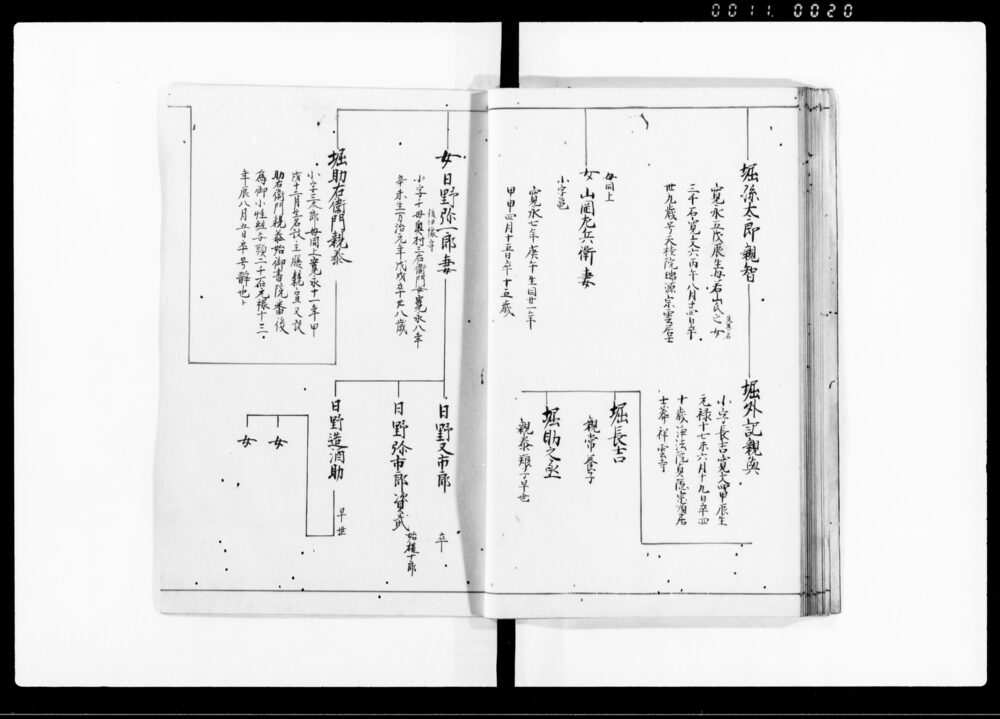 0011 0020
堀孫太郎親智
寛永五戊辰生母若山氏之女
三千石寛文六丙午八月十四日卒
卅九歳号天桂院瑞源宗雲居士
堀外記親英
小字長吉寛文四甲辰生
元禄十七未六月十九日卒四
十歳
士葬祥雲寺
母同上
女山岡九兵衛妻
小字亀
寛永七年庚午生同廿一年
甲申四月十五日卒十五歳
堀長吉
親常養子
堀助之丞
親泰嫡子早也
女日野弥一郎妻
小字十母奥村三右衛門女寛永八年
辛未生万治元年戊戌卒廿八歳
日野又市郎
卒
日野弥市郎資武
日野造酒助
早世
堀助右衛門親泰
小字三太郎母同上寛永十一年甲
戌十二月生名設主膳親宣又設
助右衛門親泰始御書院番後
為御小性組与頭二千石元禄十三
年辰八月五日卒号
女
女